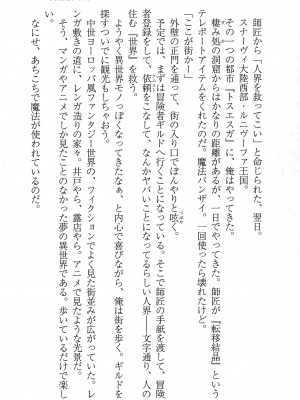 師匠から「人界を救ってこい」と命じられた、翌日。
スナーヴィ大陸西部・ルニヴーファ王国。
その一つの都市『トスエスガ』に、俺はやってきた。
棲み処の洞窟からはかなりの距離があるが、一日でやってきた。師匠が『転移結晶』という
テレポートアイテムをくれたのだ。魔法バンザイ。一回使ったら壊れたけど。
「ここが街かー」
外壁の正門を通って、街の入り口でぼんやりと呟く。
予定では、まずは冒険者ギルドへ行くことになっている。そこで師匠の手紙を渡して、冒険
者登録をして、依頼をこなして、なんかヤバいことになってるらしい人界――文字通り、人の
住む『世界』を救う。
ようやく異世界モノっぽくなってきたなぁ、と内心で喜びながら、俺は街を歩く。ギルドを
探すついでに観光もしちゃおう。
中世ヨーロッパ風ファンタジー世界の、フィクションでよく見た街並みが広がっていた。レ
ンガ敷きの道に、レンガ造りの家々。井戸やら、露店やら。アニメで見たような光景だ。
そう、マンガやアニメでしか見たことのなかった夢の異世界である。歩いているだけで楽し
い。
なにせ、あちこちで魔法が使われているのだ。